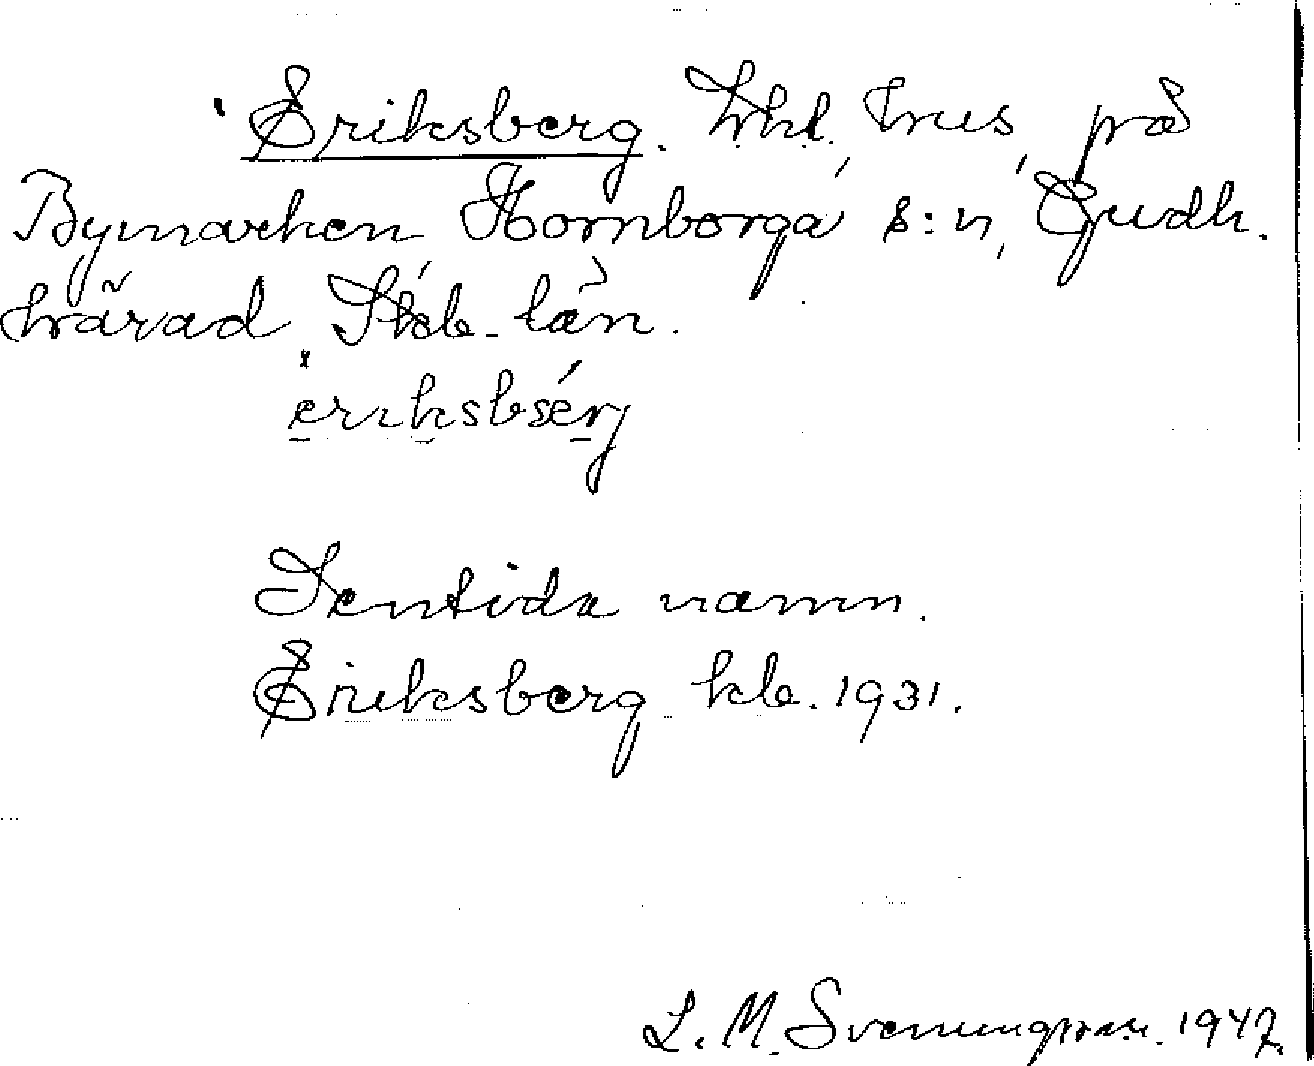 Eriksberg. hus, på
Bymarken Hornborga s:n, Gudh.
härad, Skb. län.
Sentida namn.
Eriksberg kb. 1931.
L. M. Svenungsson. 1947.